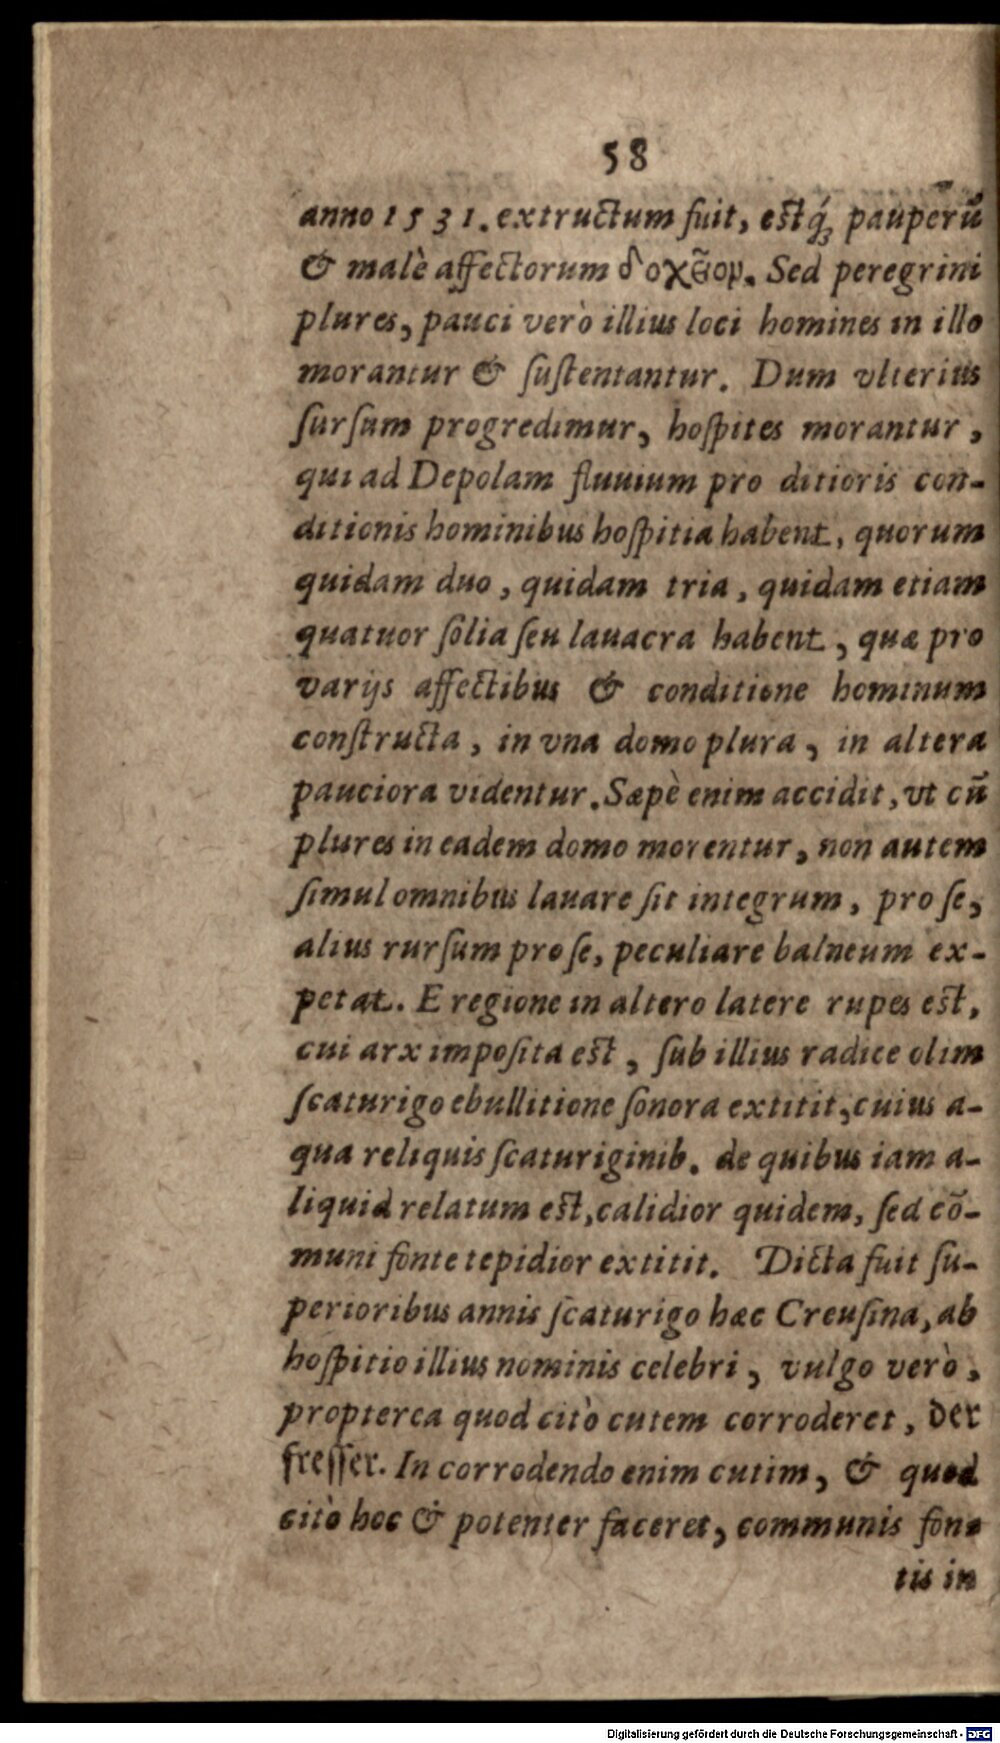 58
anno 1531. extructum fuit, estq́; pauperū
& malè affectorum δοχεῖον. Sed peregrini
plures, pauci verò illius loci homines in illo
morantur & ſuſtentantur. Dum vlterius
ſurſum progredimur, hoſpites morantur,
qui ad Depolam fluuium pro ditioris con-
ditionis hominibus hoſpitia habent, quorum
quidam duo, quidam tria, quidam etiam
quatuor ſolia ſeu lauacra habent, quæ pro
varijs affectibus & conditione hominum
conſtructa, in vna domo plura, in altera
pauciora videntur. Sæpè enim accidit, vt cū
plures in eadem domo morentur, non autem
ſimul omnibus lauare ſit integrum, pro ſe,
alius rurſum pro ſe, peculiare balneum ex-
petat. E regione in altero latere rupes est,
cui arx impoſita est, ſub illius radice olim
ſcaturigo ebullitione ſonora extitit, cuius a-
qua reliquis ſcaturiginib. de quibus iam a-
liquid relatum est, calidior quidem, ſed cō-
muni fonte tepidior extitit. Dicta fuit ſu-
perioribus annis ſcaturigo hæc Creuſina, ab
hoſpitio illius nominis celebri, vulgo verò,
propterea quod citò cutem corroderet, der
freſſer. In corrodendo enim cutim, & quod
citò hoc & potenter faceret, communis fon-
tis in
Digitalisierung gefördert durch die Deutsche Forschungsgemeinschaft - DFG